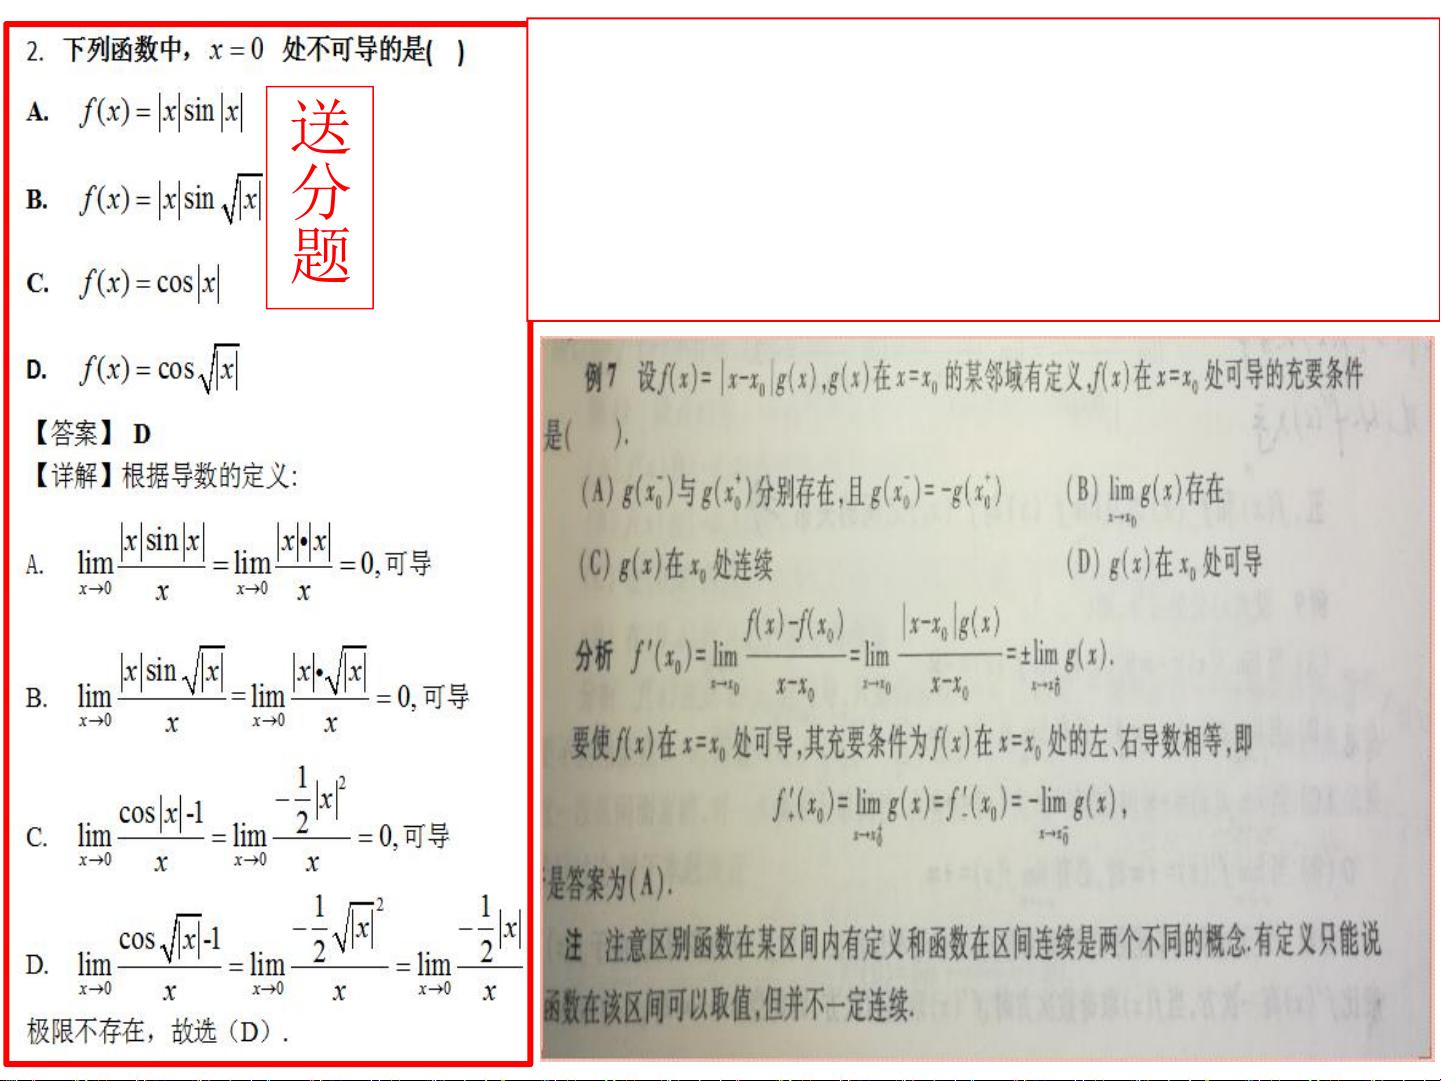 2. 下列函数中， x = 0 处不可导的是( )
A. f(x) = |x| sin |x|
B. f(x) = |x| sin √|x|
C. f(x) = cos |x|
D. f(x) = cos √|x|
送
分
题
【答案】 D
【详解】根据导数的定义:
A. lim_{x→0} |x| sin |x| / x = lim_{x→0} |x|•|x| / x = 0, 可导
B. lim_{x→0} |x| sin √|x| / x = lim_{x→0} |x|•√|x| / x = 0, 可导
C. lim_{x→0} (cos |x| -1) / x = lim_{x→0} (-1/2 |x|²) / x = 0, 可导
D. lim_{x→0} (cos √|x| -1) / x = lim_{x→0} (-1/2 √|x|²) / x = lim_{x→0} (-1/2 |x|) / x
极限不存在，故选（D）.
例7 设f(x)= |x-x₀|g(x),g(x)在x=x₀ 的某邻域有定义,f(x)在x=x₀ 处可导的充要条件
是( ).
(A) g(x₀⁻)与g(x₀⁺)分别存在,且g(x₀⁻)=-g(x₀⁺) (B) lim_{x→x₀} g(x)存在
(C) g(x)在x₀ 处连续 (D) g(x)在x₀ 处可导
分析 f′(x₀)= lim_{x→x₀} (f(x)-f(x₀)) / (x-x₀) = lim_{x→x₀} |x-x₀|g(x) / (x-x₀) = ± lim_{x→x₀^±} g(x).
要使f(x)在x=x₀ 处可导,其充要条件为f(x)在x=x₀ 处的左、右导数相等,即
f′₊(x₀)= lim_{x→x₀⁺} g(x)=f′₋(x₀)= - lim_{x→x₀⁻} g(x),
是答案为(A).
注 注意区别函数在某区间内有定义和函数在区间连续是两个不同的概念.有定义只能说
函数在该区间可以取值,但并不一定连续.